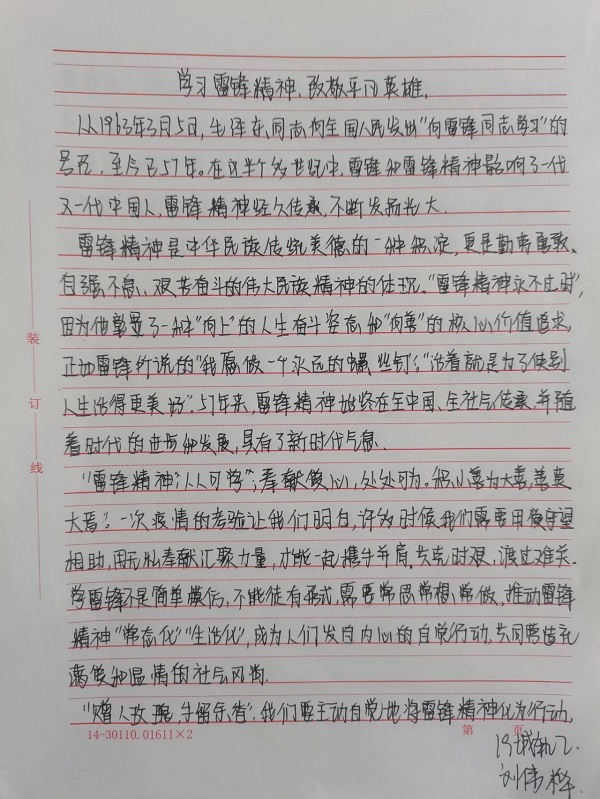 学习雷锋精神,致敬平凡英雄,
从1963年3月5日,毛泽东同志向全国人民发出“向雷锋同志学习”的
号召,至今已57年。在这半个多世纪中,雷锋和雷锋精神影响了一代
又一代中国人,雷锋精神经久传承,不断发扬光大.
雷锋精神是中华民族传统美德的一种积淀,更是勤劳勇敢、
自强不息、艰苦奋斗的伟大民族精神的体现。“雷锋精神永不过时”,
因为他彰显了一种“向上”的人生奋斗姿态和“向善”的核心价值追求,
正如雷锋所说的“我愿做一个永远的螺丝钉”;“活着就是为了使别
人生活得更美好”.57年来,雷锋精神始终在全中国、全社会传承,并随
着时代的进步和发展,具有了新时代气息.
“雷锋精神,人人可学”;奉献爱心,处处可为。积小善为大善,善莫
大焉!一次疫情的考验让我们明白,许多时候我们需要用爱守望
相助,用无私奉献汇聚力量,才能一起携手并肩,共克时艰,渡过难关.
学雷锋不是简单模仿,不能徒有形式,需要常思常想、常做,推动雷锋
精神“常态化”“生活化”,成为人们发自内心的自觉行动.共同营造充
满爱和温情的社会风尚.
“赠人玫瑰,手留余香”.我们要主动自觉地将雷锋精神化为行动.
装
订
线
14-30110.01611×2
第 页
19城轨乙.
刘伟桦.